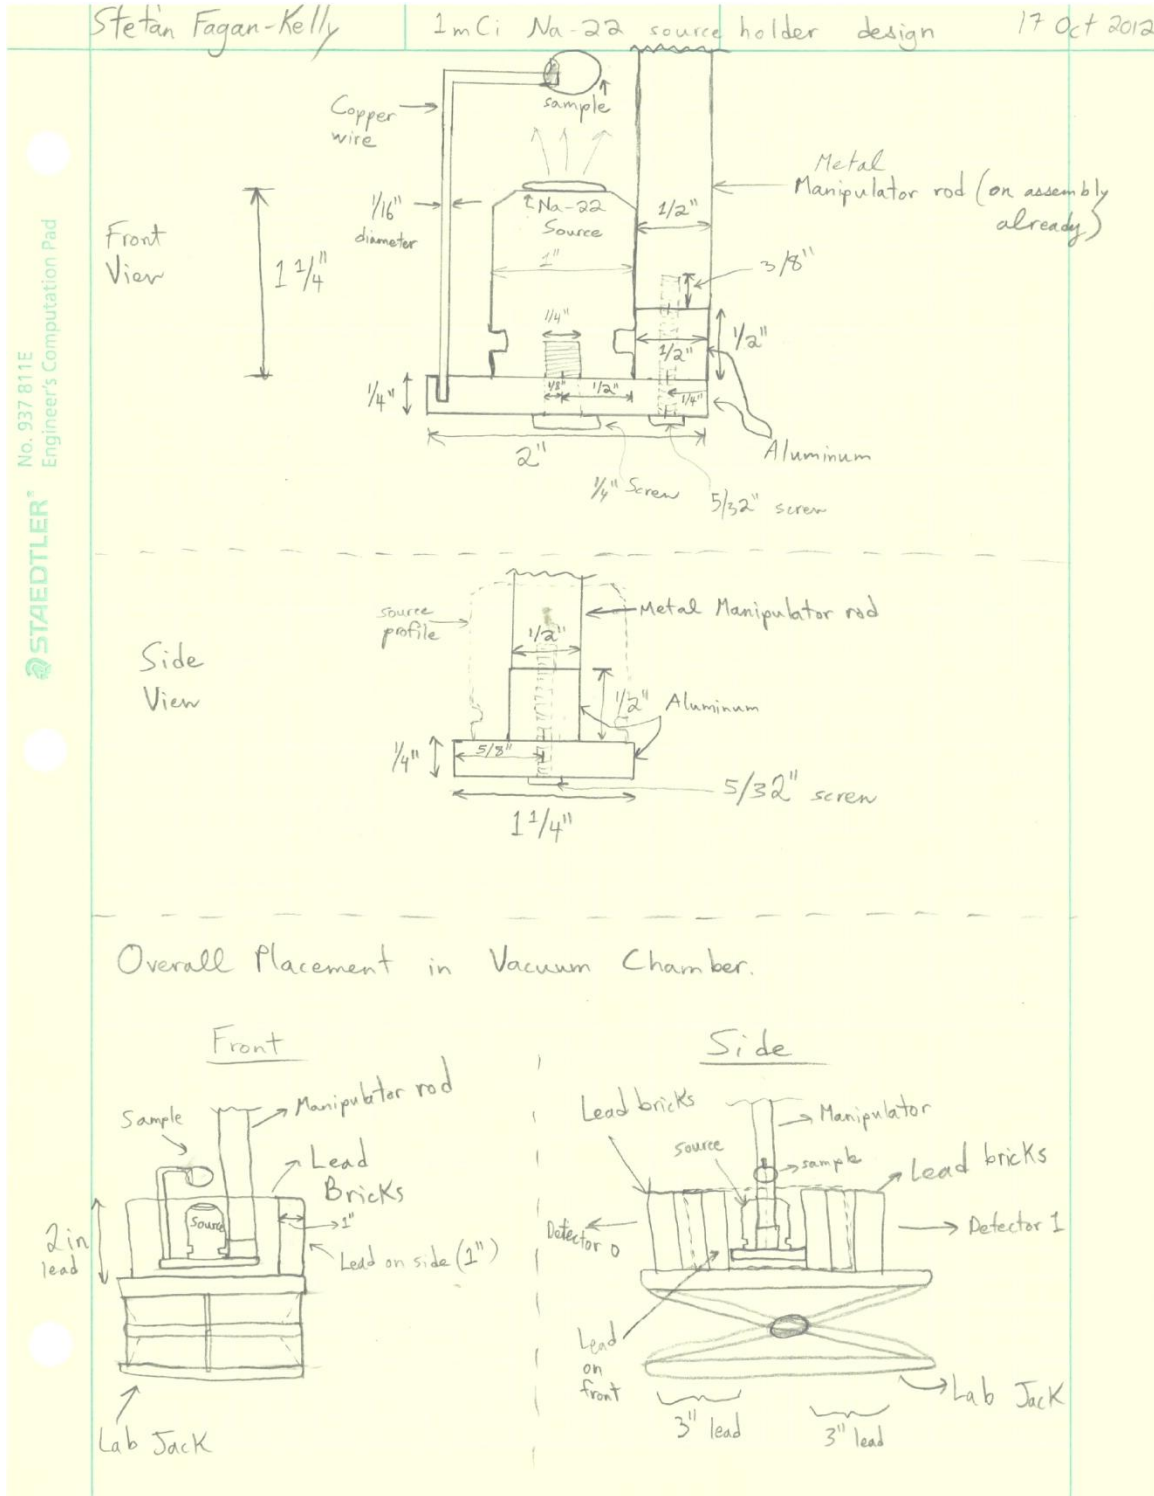 Stefan Fagan-Kelly
1mCi Na-22 source holder design
17 Oct 2012
No. 937 811E
Engineer's Computation Pad
STAEDTLER®
Front
View
Copper
wire
sample
Metal
Manipulator rod (on assembly
already)
1/16"
diameter
Na-22
Source
1/2"
1 1/4"
1"
3/8"
1/4"
1/2"
1/2"
1/4"
1/8"
1/2"
1/4"
2"
Aluminum
1/4" Screw
5/32" screw
Side
View
source
profile
Metal Manipulator rod
1/2"
1/2"
Aluminum
1/4"
5/8"
5/32" screw
1 1/4"
Overall Placement in Vacuum Chamber.
Front
Sample
Manipulator rod
Lead
Bricks
source
1"
2 in
lead
Lead on side (1")
Lab Jack
Side
Lead bricks
Manipulator
source
sample
Lead bricks
Detector 0
Detector 1
Lead
on
front
Lab Jack
3" lead
3" lead